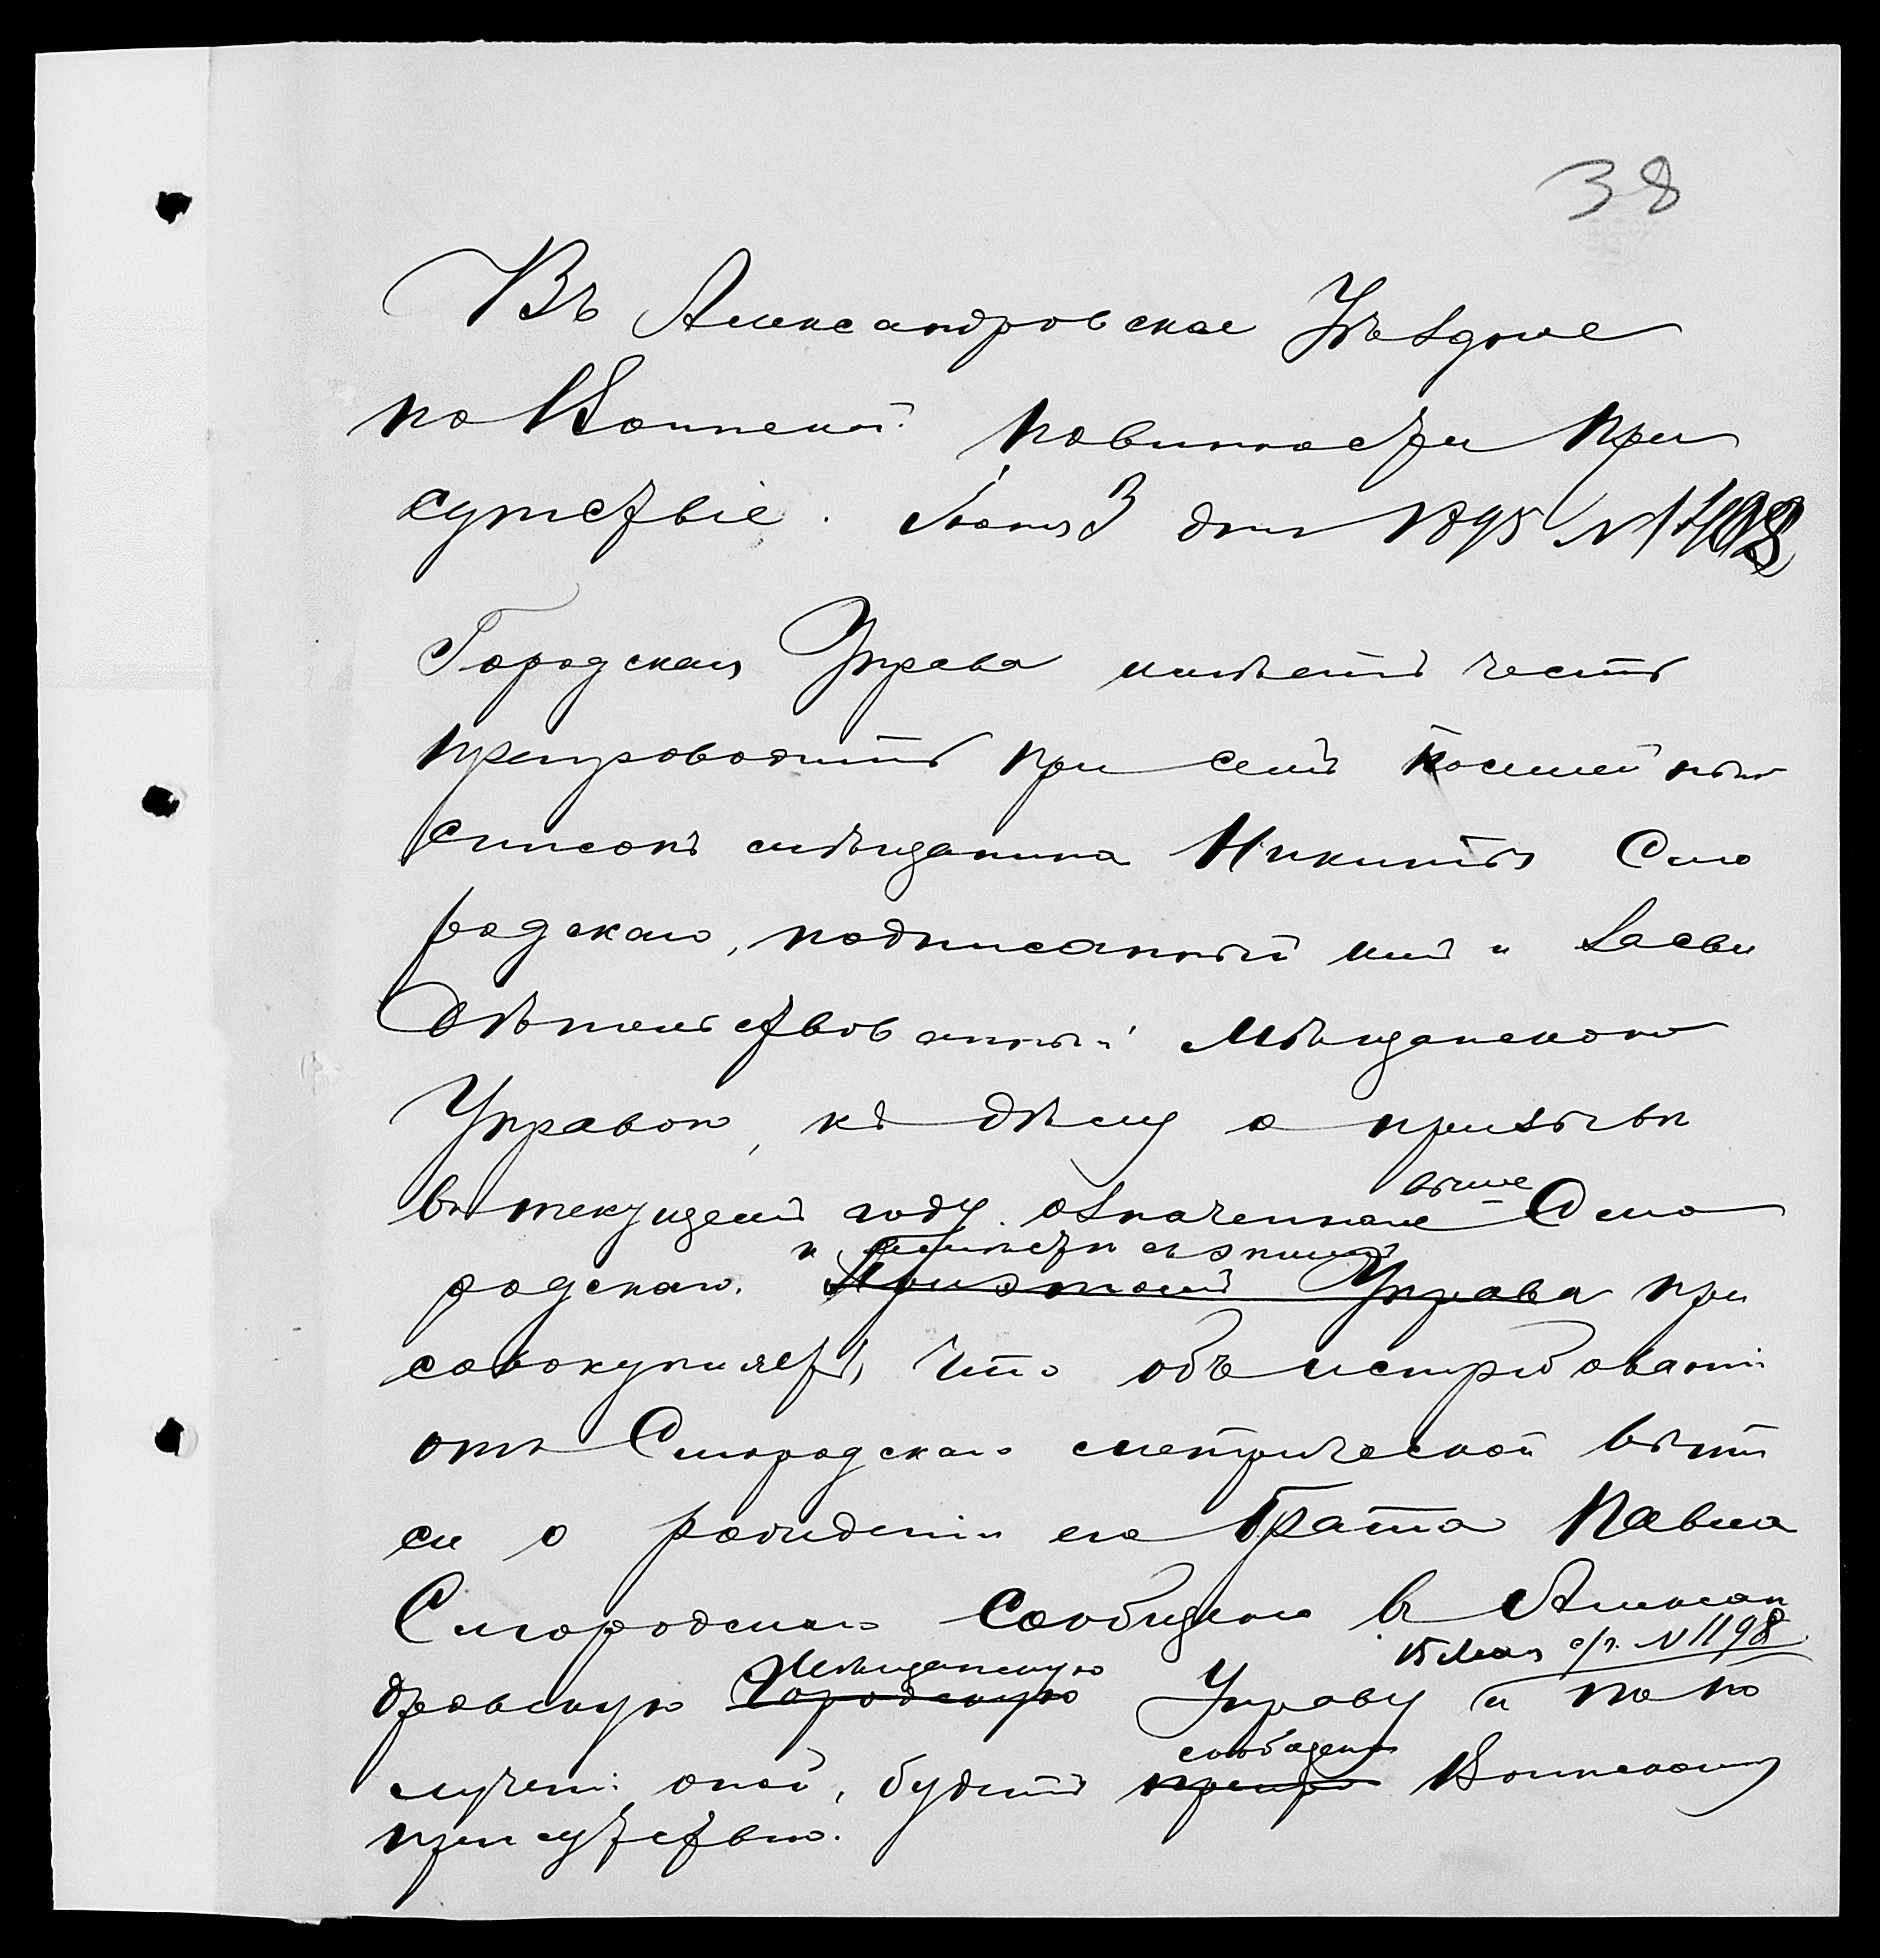 38
Въ Александровское Уѣздное
по Воинской повинности при
сутствіе. Іюня 3 дня 1895 №
Городская Управа имѣетъ честь
препроводить при семъ посемейный
списокъ мѣщанина Никиты Смо
родскаго, подписанный имъ и засви
дѣтельствованный Мѣщанскою
Управою, къ дѣлу о призывѣ
въ текущемъ году означеннаго выше Смо
родскаго. Управа при
совокупляетъ, что объ истребованіи
отъ Смородскаго метрической выпи
си о рожденіи его брата Павла
Смородскаго сообщено въ Алексан
15 Мая с/г. № 1198
Мѣщанскую
дровскую Городскую Управу и по по
сообщено
лученіи оной, будетъ препро Воинскому
присутствію.